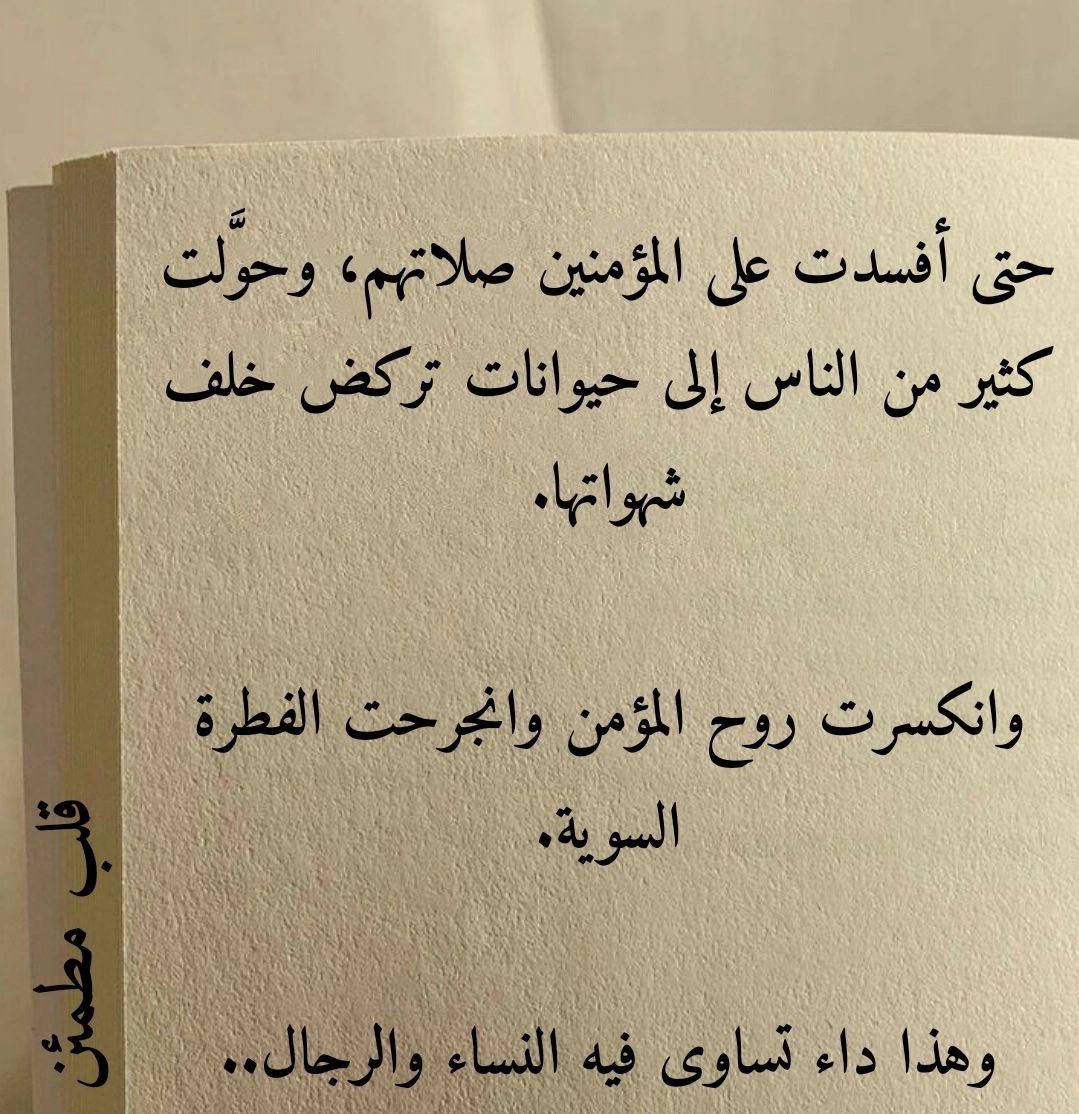 حتى أفسدت على المؤمنين صلاتهم، وحوَّلت
كثير من الناس إلى حيوانات تركض خلف
شهواتها.
وانكسرت روح المؤمن وانجرحت الفطرة
السوية.
وهذا داء تساوى فيه النساء والرجال..
قلب مطمئن